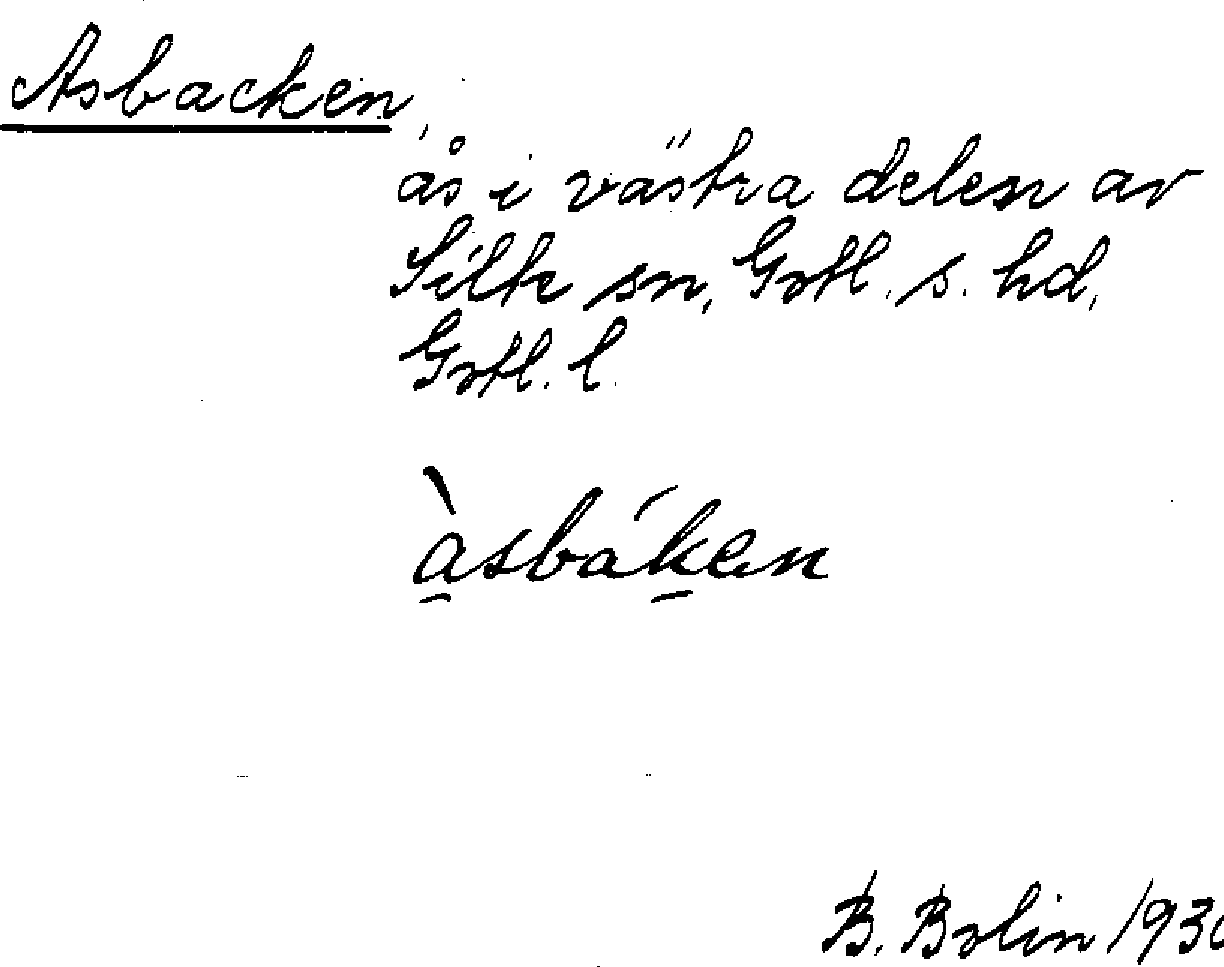 Asbacken,
ås i västra delen av
Silte sn, Gotl. s. hd,
Gotl. l.
àsbáken
B. Bolin 193